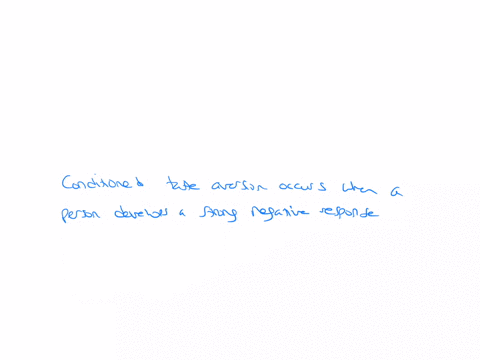 Conditioned taste aversion occurs when a
person develops a strong negative response